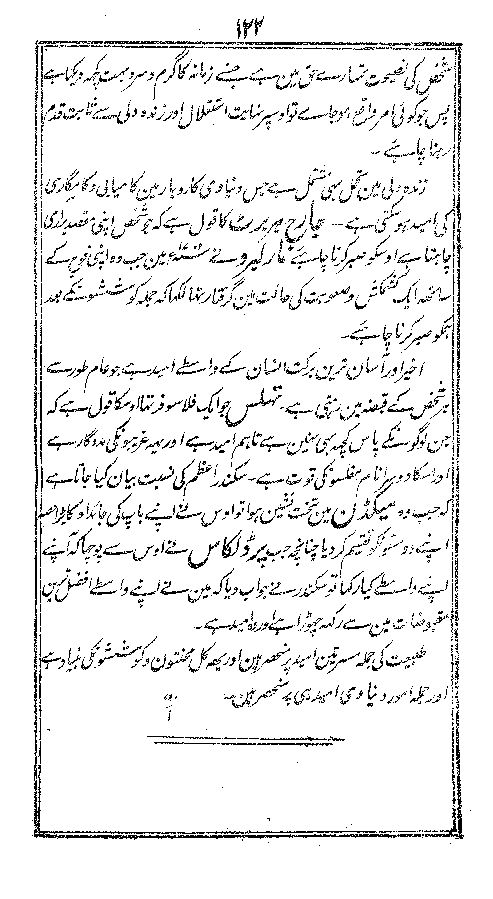 ۱۲۲
شخص کی نصیحت تمہارے حق مین ہے جسنے زمانہ کا گرم و سرد بہت کچہ دیکہا ہے
پس جو کوئی امر واقع ہو جاے تو اوسپر نہایت استقلال اور زندہ دلی سے ثابت قدم
رہنا چاہئے ۔
زندہ دلی مین تحمل بہی شامل ہے جس دنیاوی کاروبار مین کامیابی و کامگاری
کی امید ہوسکتی ہے ۔ جارج ہربرٹ کا قول ہے کہ جو شخص اپنی مقصد براری
چاہتا ہے اوسکو صبر کرنا چاہئے مارلبرو نے مین جب وہ اپنی فوج کے
ساتہہ ایک کشمکش و صعوبت کی حالت مین گرفتار تہا لکہا کہ جملہ کوششونکے بعد
ہمکو صبر کرنا چاہئے ۔
اخیر اور آسان ترین برکت انسان کے واسطے امید ہے جو عام طور سے
ہر شخص کے قبضہ مین رہتی ہے ۔ تہیلس جو ایک فلاسوفر تہا اوسکا قول ہے کہ
جن لوگونکے پاس کچہہ بہی نہین ہے تاہم امید ہے اور یہہ غریبونکی مددگار ہے
اور اسکا دوسرا نام مفلسونکی قوت ہے ۔ سکندر اعظم کی نسبت بیان کیا جاتا ہے
کہ جب وہ میگڈن مین تخت نشین ہوا تو اوس نے اپنے باپ کی جائداد کا بڑا حصہ
اپنے دوستونکو تقسیم کردیا چنانچہ جب پرڈیکاس نے اوس سے پوچہا کہ آپنے
اپنے واسطے کیا رکہا تو سکندر نے جواب دیا کہ مین نے اپنے واسطے افضل ترین
مقبوضات مین سے رکہہ چہوڑا ہے اور وہ امید ہے ۔
طبیعت کی جملہ مسرتین امید پر منحصر ہین اور یہہ کل محنتون و کوششونکی بنیاد ہے
اور جملہ امور دنیاوی امید ہی پر منحصر ہین ۔